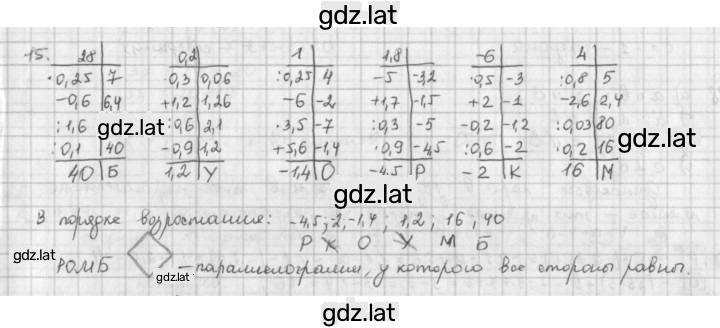 gdz.lat
15. 28 0,2 1 1,8 -6 4
·0,25 7 ·0,3 0,06 :0,25 4 -5 -3,2 ·0,5 -3 :0,8 5
-0,6 6,4 +1,2 1,26 -6 -2 +1,7 -1,5 +2 -1 -2,6 2,4
:1,6 gdz.lat :0,6 2,1 ·3,5 -7 :0,3 -5 -0,2 -1,2 :0,03 80 gdz.lat
:0,1 40 -0,9 1,2 +5,6 -1,4 ·0,9 -4,5 :0,6 -2 ·0,2 16
40 Б 1,2 У -1,4 О -4,5 Р -2 К 16 М
gdz.lat
В порядке возростания: -4,5; -2; -1,4; 1,2; 16; 40
Р К О У М Б
gdz.lat РОМБ gdz.lat – параллелограмм, у которого все стороны равны.
gdz.lat